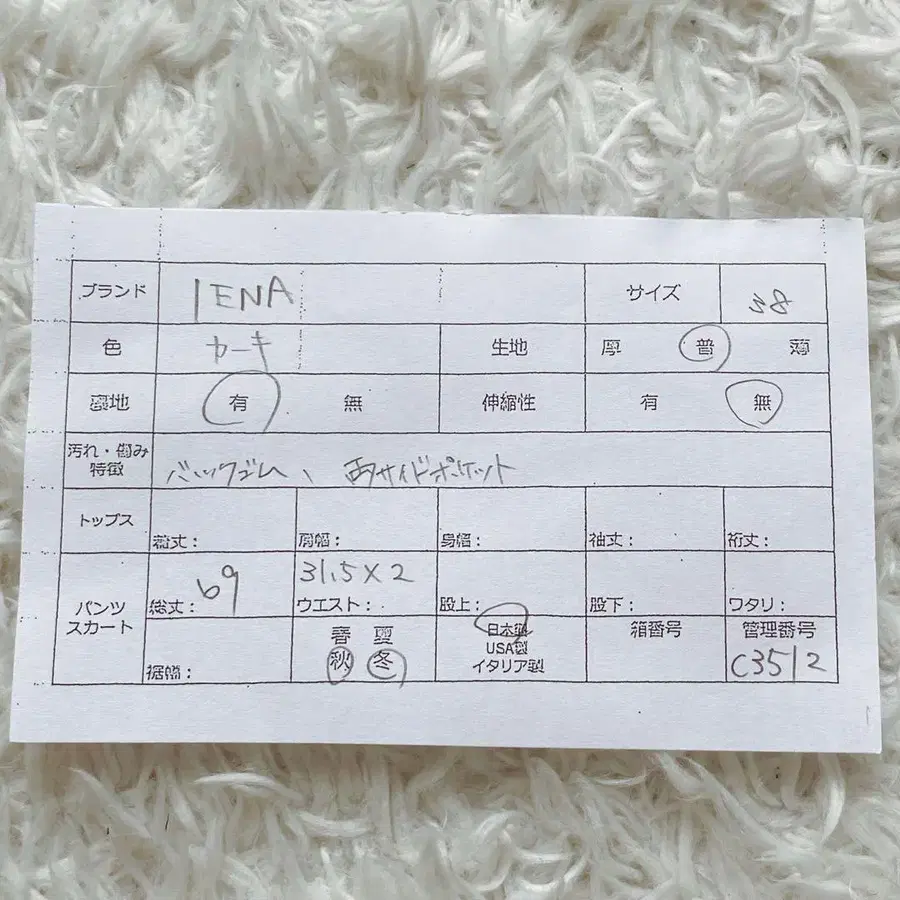 ブランド IENA サイズ 38
色 カーキ 生地 厚 普 薄
裏地 有 無 伸縮性 有 無
汚れ・傷み
特徴 バックゴム、両サイドポケット
トップス 着丈: 肩幅: 身幅: 袖丈: 裄丈:
パンツ
スカート
総丈: 69
31.5×2
ウエスト: 股上: 股下: ワタリ:
裾幅:
春 夏
秋 冬
日本製
USA製
イタリア製
箱番号
管理番号
C3512